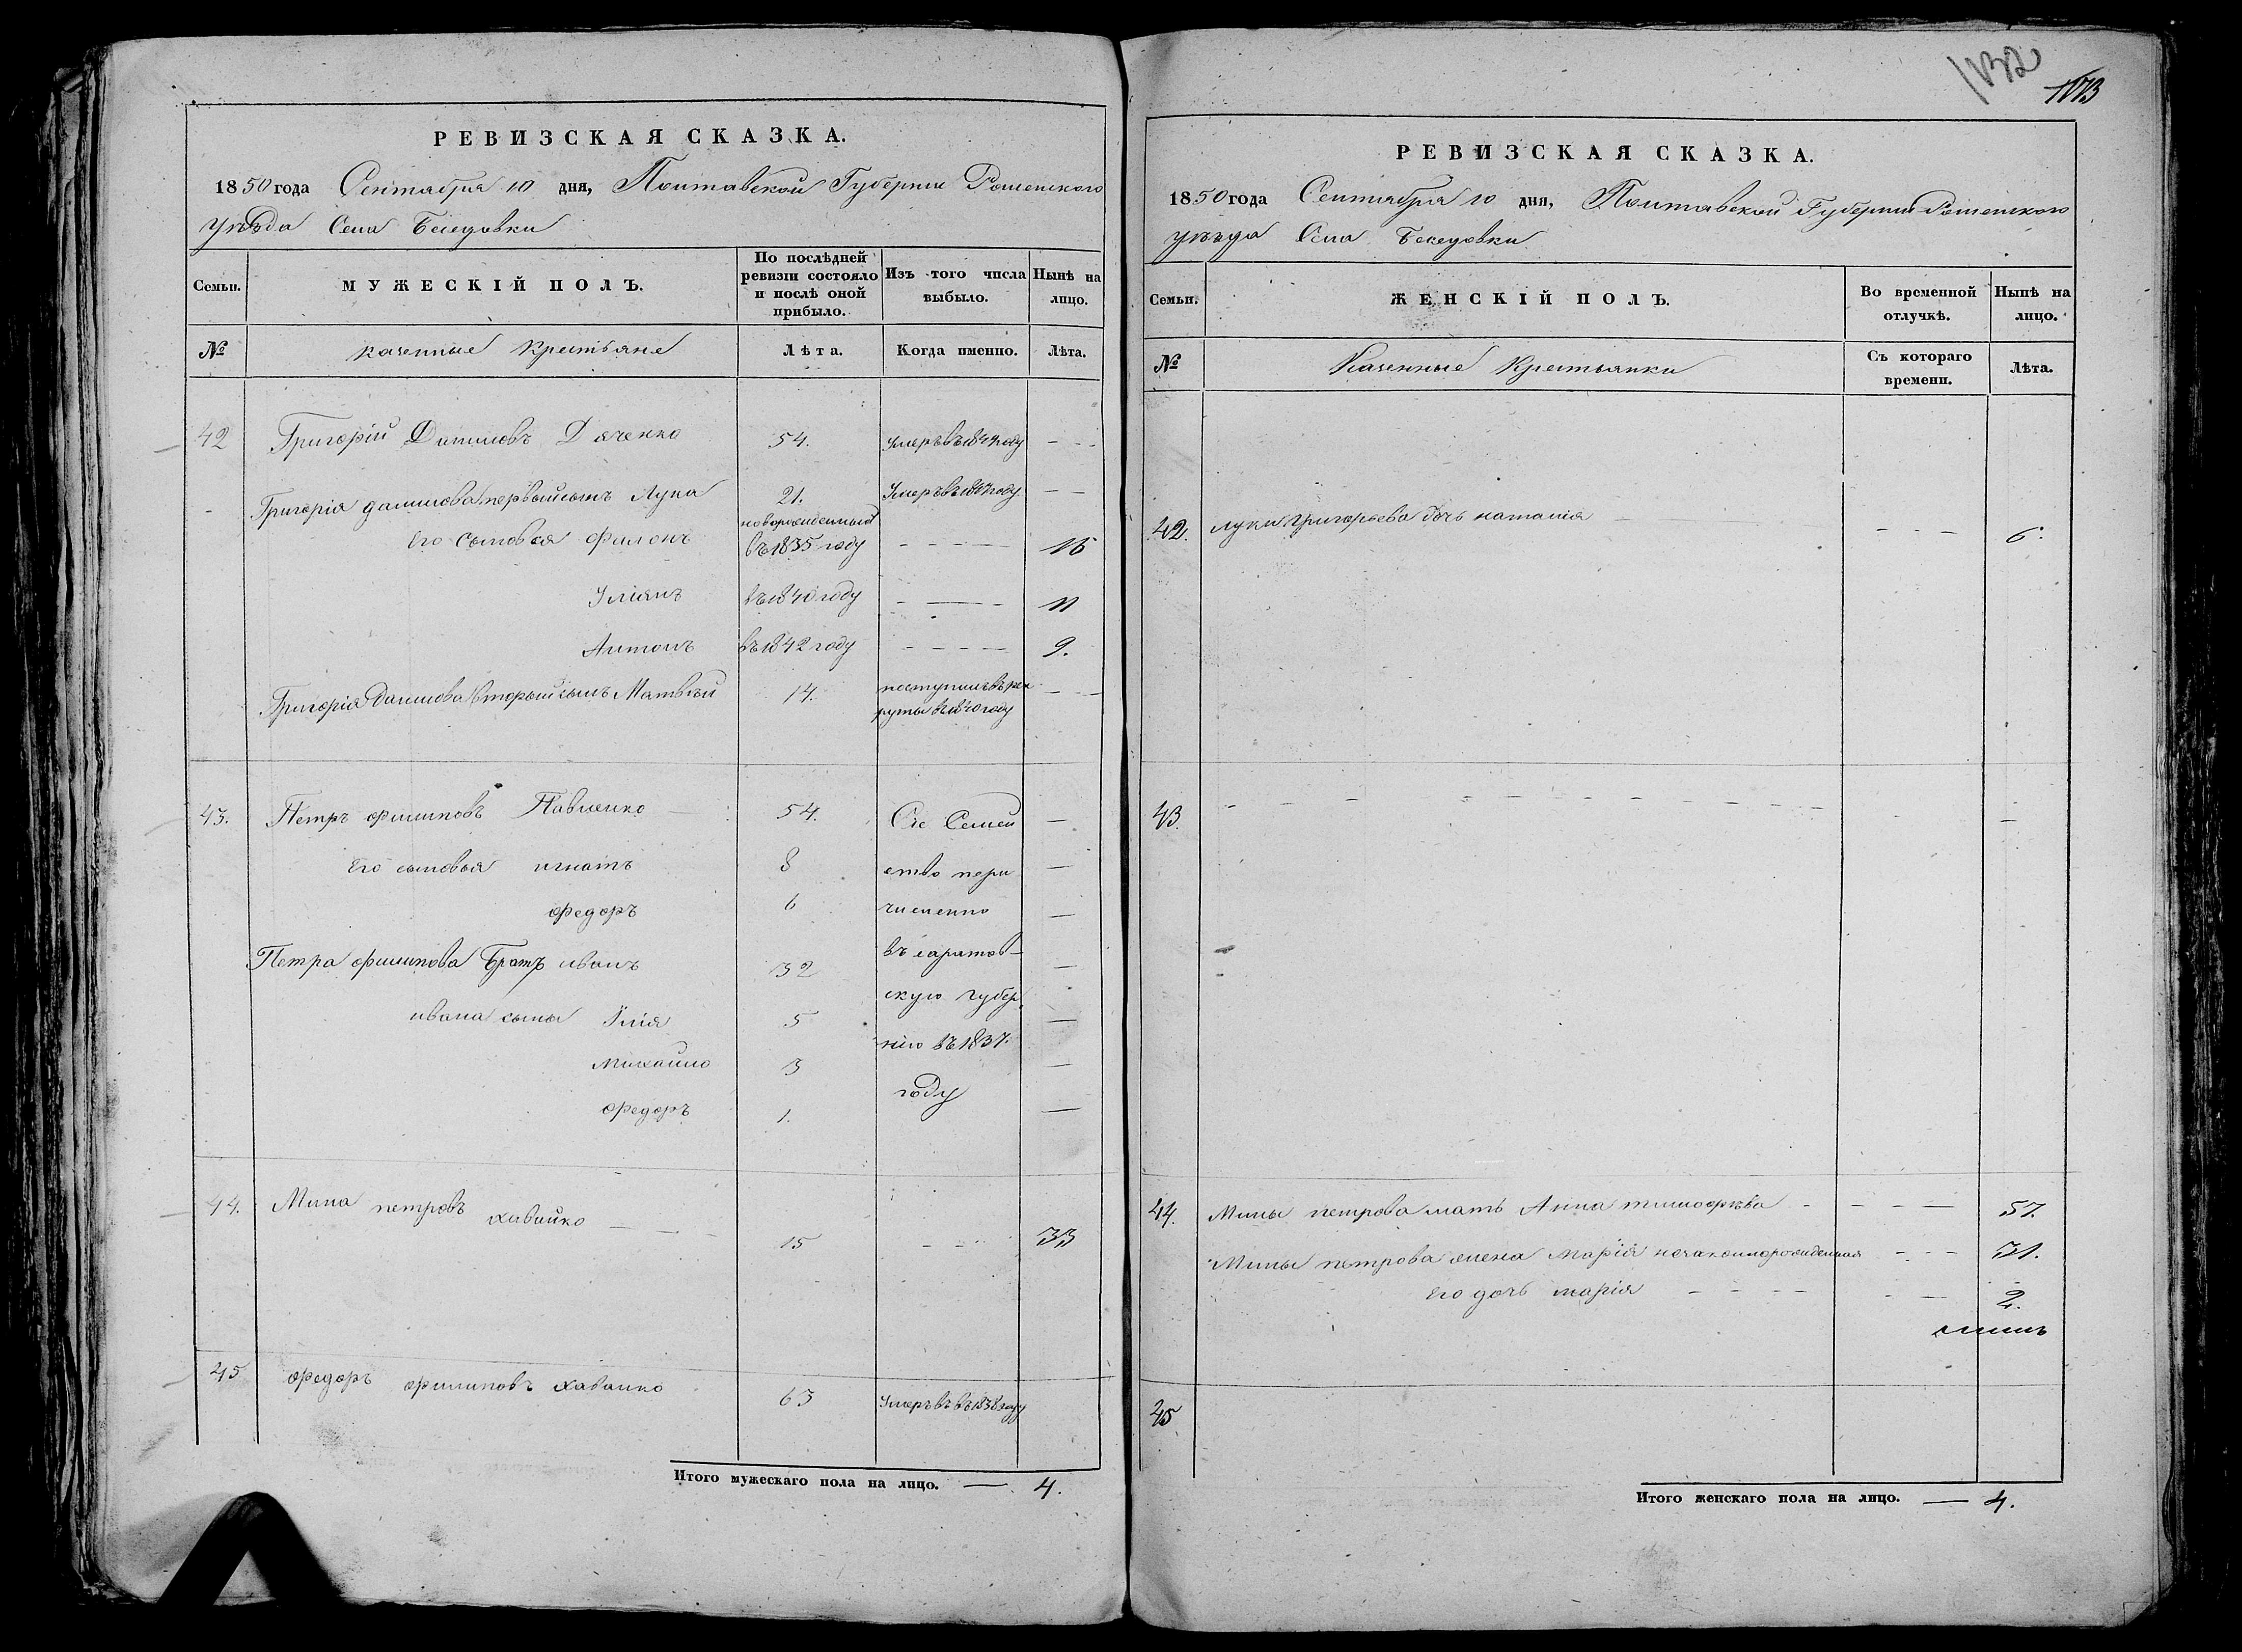 РЕВИЗСКАЯ СКАЗКА.
1850 года Сентября 10 дня, Полтавской Губернии Роменского
уѣзда Села Беседовки
Семьи.
МУЖЕСКІЙ ПОЛЪ.
По послѣдней ревизіи состояло и послѣ оной прибыло.
Изъ того числа выбыло.
Нынѣ на лицо.
№
казенные Крестьяне
Лѣта.
Когда именно.
Лѣта.
42 Григорій Даниловъ Дяченко 54. умеръ въ 1844 году - - -
Григорія данилова первый сынъ Лука 21. Умеръ въ 1847 году - -
новорожденный
Его сыновья Филонъ въ 1835 году - - - - 15
Уліянъ въ 1840 году - - - 11
Антонъ въ 1842 году - - - - - 9.
Григорія Данилова вторый сынъ Матвѣй 14. поступилъ въ рек
руты въ 1840 году - - -
43. Петръ филиповъ Павленко 54. Сіе Семей —
Его сыновья игнатъ 8 ство пери —
федоръ 6 численно —
Петра филипова Братъ иванъ 32 въ саратов— —
ивана сыны Илія 5 скую губер —
михайло 3 нію въ 1837. —
федоръ 1. году —
44. Мина петровъ хавайко — — 15 - - - 33
45 федоръ филиповъ хавайко 63 Умеръ въ въ 1838 году
Итого мужескаго пола на лицо. — 4.
1132
1073
РЕВИЗСКАЯ СКАЗКА.
1850 года Сентября 10 дня, Полтавской Губернии Роменского
уѣзда Села Беседовки
Семьи.
ЖЕНСКІЙ ПОЛЪ.
Во временной отлучкѣ.
Нынѣ на лицо.
№
Казенные Крестьянки
Съ котораго времени.
Лѣта.
42. луки григорьева дочь наталия - - - 6.
43. - - - - - - - - - - - - —
44. Мины петрова мать Анна тимофѣева - - - — 57.
Мины петрова жена Марія - - - 31.
Его дочь марія - - - - - — 2.
45
Итого женскаго пола на лицо. — 4.